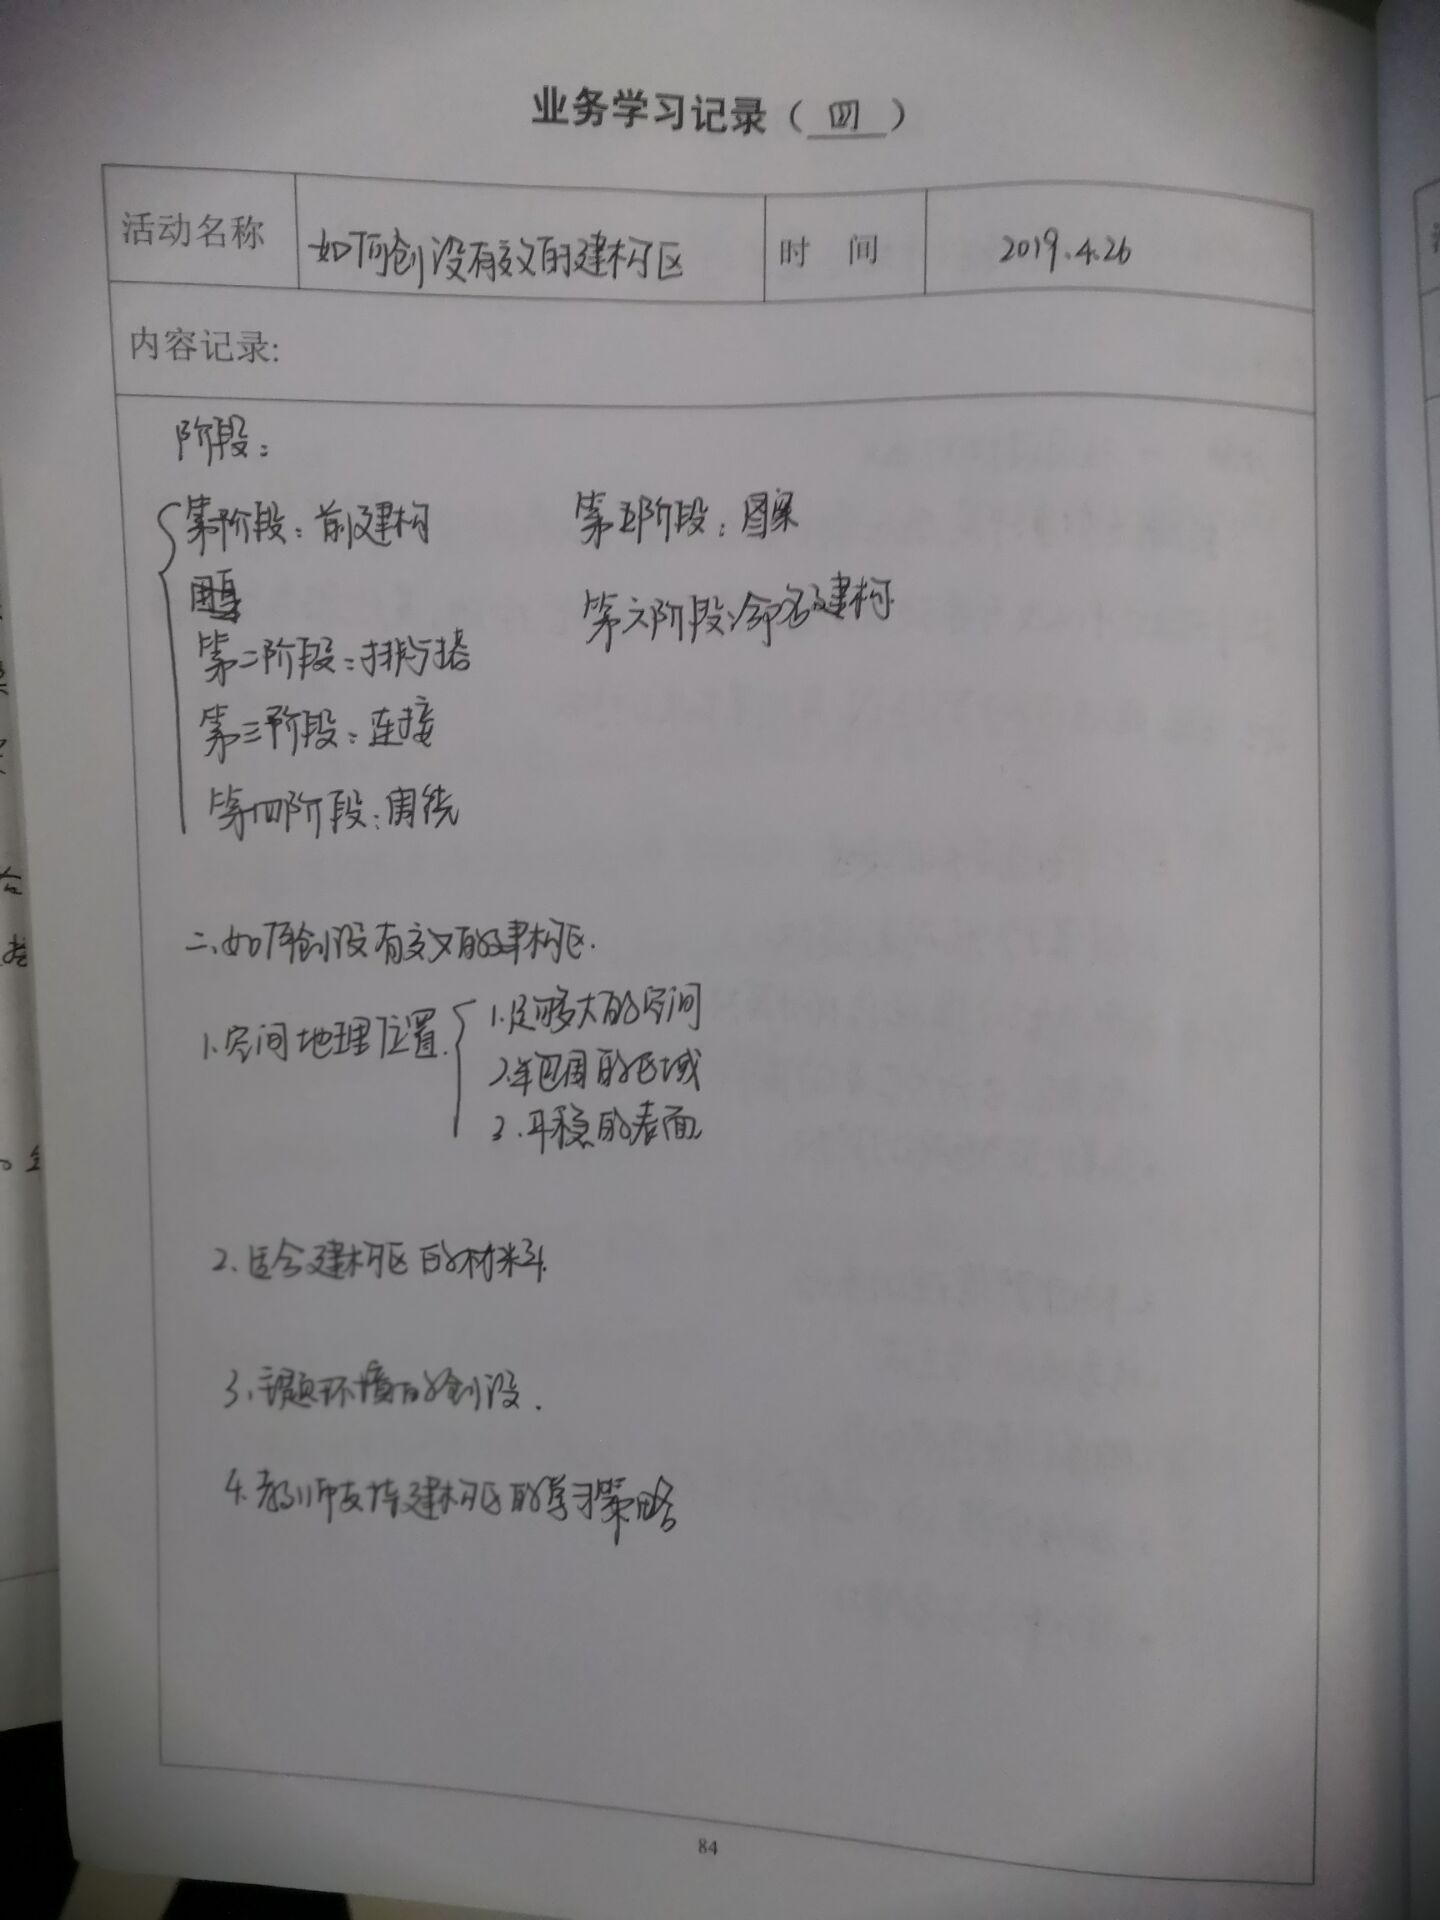 业务学习记录（四）
活动名称 如何创设有效的建构区 时 间 2019.4.26
内容记录:
阶段：
第一阶段：前建构
第二阶段：排与搭
第三阶段：连接
第四阶段：围绕
第五阶段：图案
第六阶段：命名建构
二、如何创设有效的建构区.
1.空间地理位置.
1.足够大的空间
2.半包围的区域
3.平稳的表面
2.适合建构区的材料.
3.主题环境的创设.
4.教师支持建构区的学习策略
84